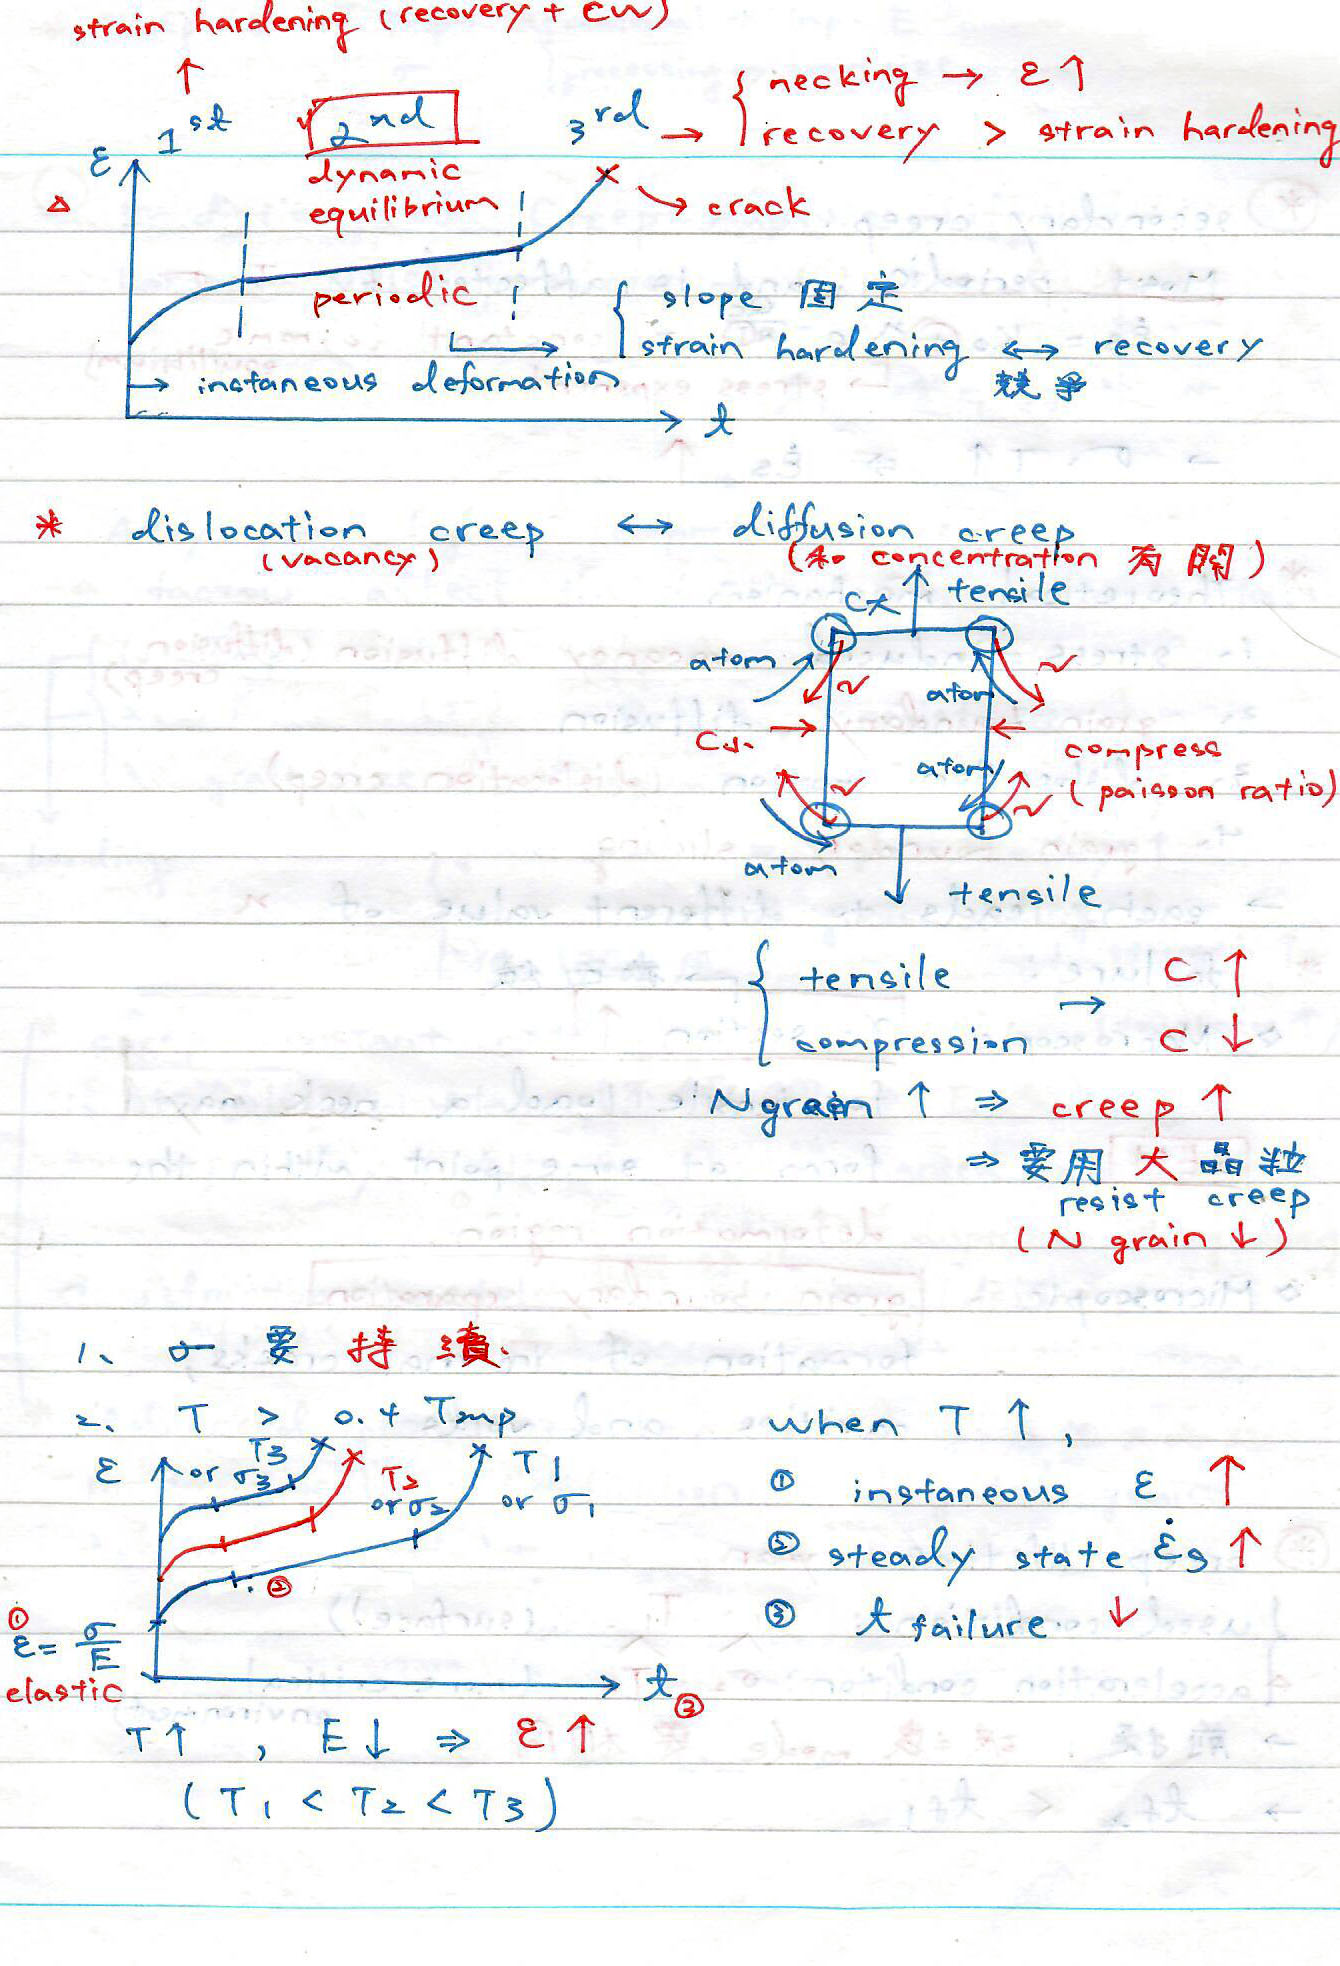 strain hardening (recovery + CW)
↑
1st 2nd 3rd → { necking → ε ↑
recovery > strain hardening
ε
dynamic
equilibrium
→ crack
△
periodic
{ slope 固定
strain hardening ↔ recovery
競爭
→ instaneous deformation
t
* dislocation creep ↔ diffusion creep
(vacancy) (和 concentration 有關)
C大 tensile
atom
atom
C小
compress
(paisson ratio)
atom
atom
tensile
{ tensile → C ↑
compression C ↓
N grain ↑ ⇒ creep ↑
⇒ 要用 大 晶粒
resist creep
(N grain ↓)
1、 σ 要 持 續.
2、 T > 0.4 Tmp
when T ↑ ,
ε
T3
or σ3
T2
or σ2
T1
or σ1
① instaneous ε ↑
② steady state ε̇s ↑
②
③ t failure ↓
①
ε = σ/E
elastic
t ③
T↑ , E↓ ⇒ ε ↑
(T1 < T2 < T3)